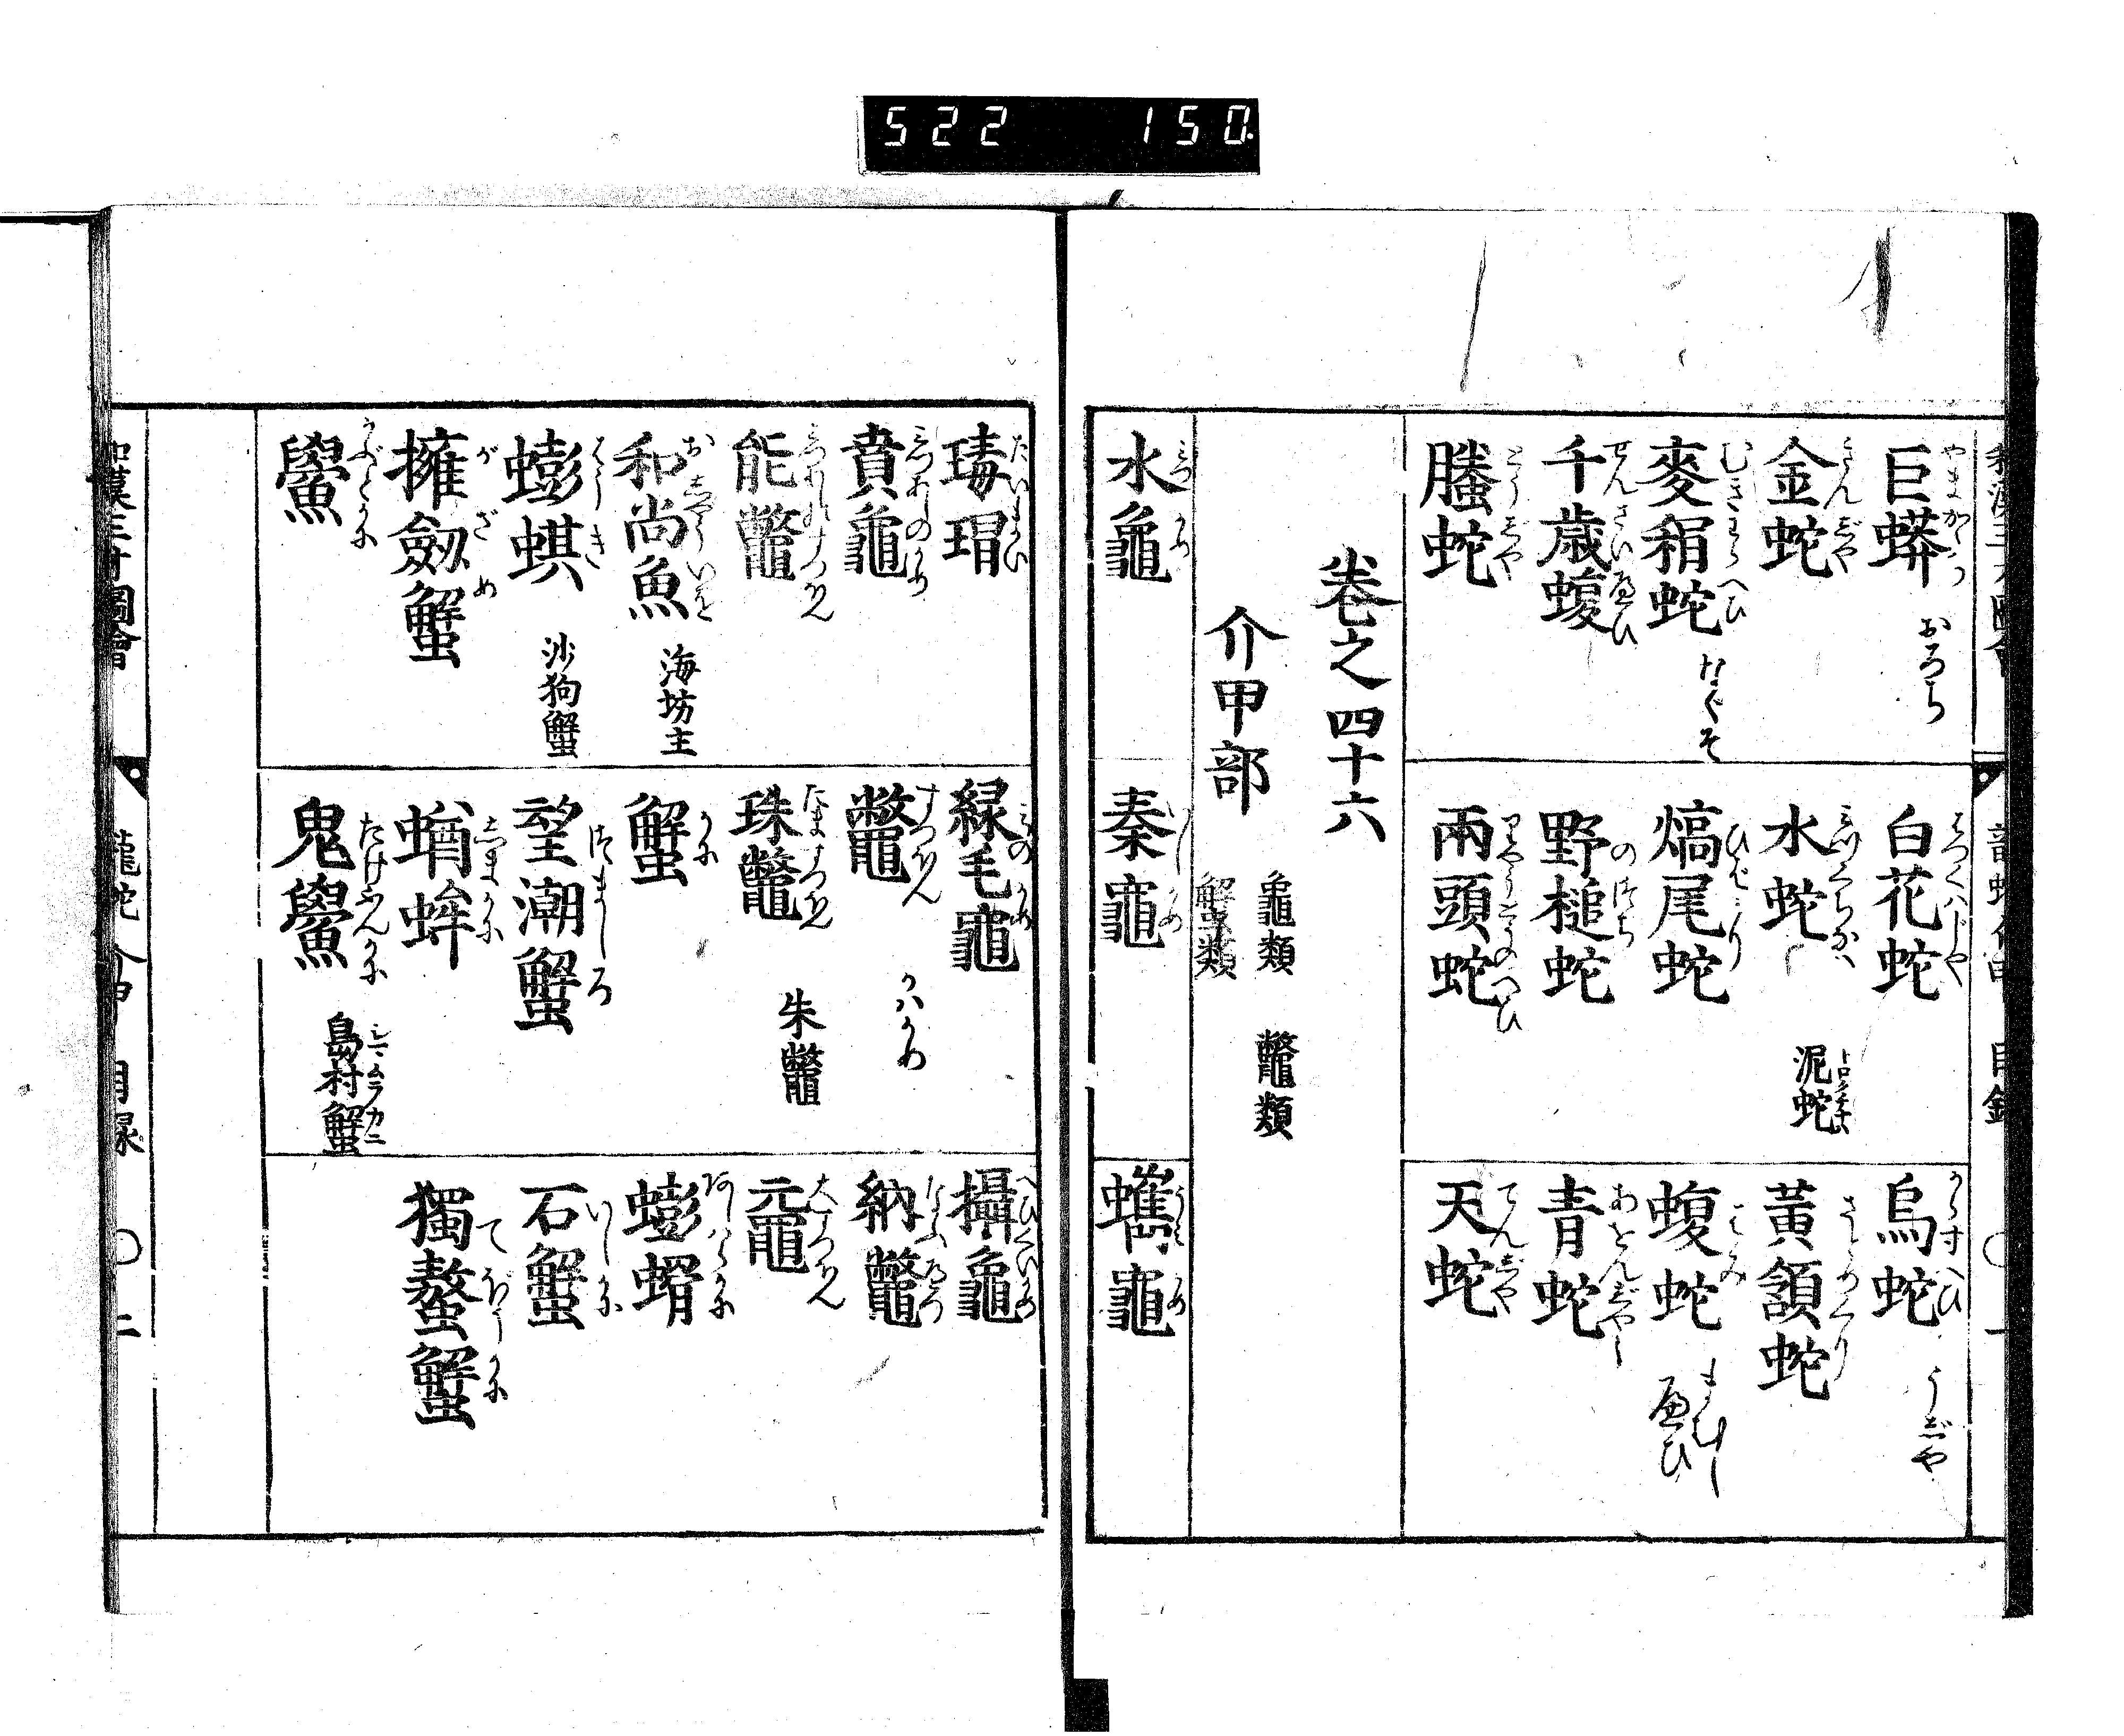 522 150.
巨蟒 やまかゞち おろち
白花蛇 はつくハじや
烏蛇 からすへび うじや
金蛇 きんじや
水蛇 みづくちなハ 泥蛇
黃頷蛇 さとめぐり
麥稍蛇 むぎわらへび
熇尾蛇 ひばかり
蝮蛇 はみ まむし へび
千歲蝮 せんさいへび
野槌蛇 のづち
青蛇 あをんじやう
螣蛇 とうじや
兩頭蛇 りやうとうのへび
天蛇 てんじや
卷之四十六
介甲部 龜類 鼈類 蟹類
水龜 みづがめ
秦龜 いしがめ
蠵龜 うみがめ
瑇瑁 たいまい
緑毛龜 みのがめ
攝龜 へびくいがめ
賁龜 みつあしのかめ
鼈 すつぽん かハかめ
納鼈
能鼈 みつあしのすつぽん
珠鼈 たますつぽん 朱鼈
黿 大すつぽん
和尚魚 おしやういを 海坊主
蟹 かに
蟛螖 あしはらがに
蟛蜞 はうき 沙狗蟹
望潮蟹
石蟹 いしがに
擁劍蟹 がざめ
蝤蛑 しまがに
獨螯蟹 てぼうがに
鱟 かぶとがに
鬼鱟 たけぶんがに 島村蟹 シマムラカニ
和漢三才圖會 龍蛇 介甲 目録 〇 二